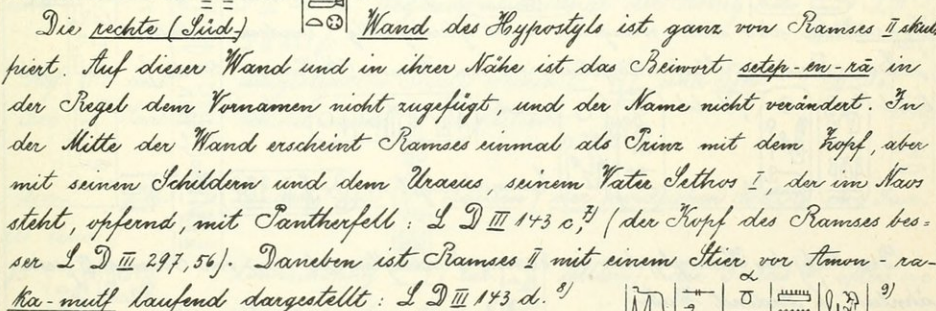 Die rechte (Süd-) Wand des Hypostyls ist ganz von Ramses II skul-
piert. Auf dieser Wand und in ihrer Nähe ist das Beiwort setep-en-rā in
der Regel dem Vornamen nicht zugefügt, und der Name nicht verändert. In
der Mitte der Wand erscheint Ramses einmal als Prinz mit dem Zopf, aber
mit seinen Schildern und dem Uraeus, seinem Vater Sethos I, der im Naos
steht, opfernd, mit Pantherfell: L D III 143 c,⁷⁾ (der Kopf des Ramses bes=
ser L D III 297,56). Daneben ist Ramses II mit einem Stier vor Amon-ra-
Ka-mutf laufend dargestellt: L D III 143 d.⁸⁾ ⁹⁾